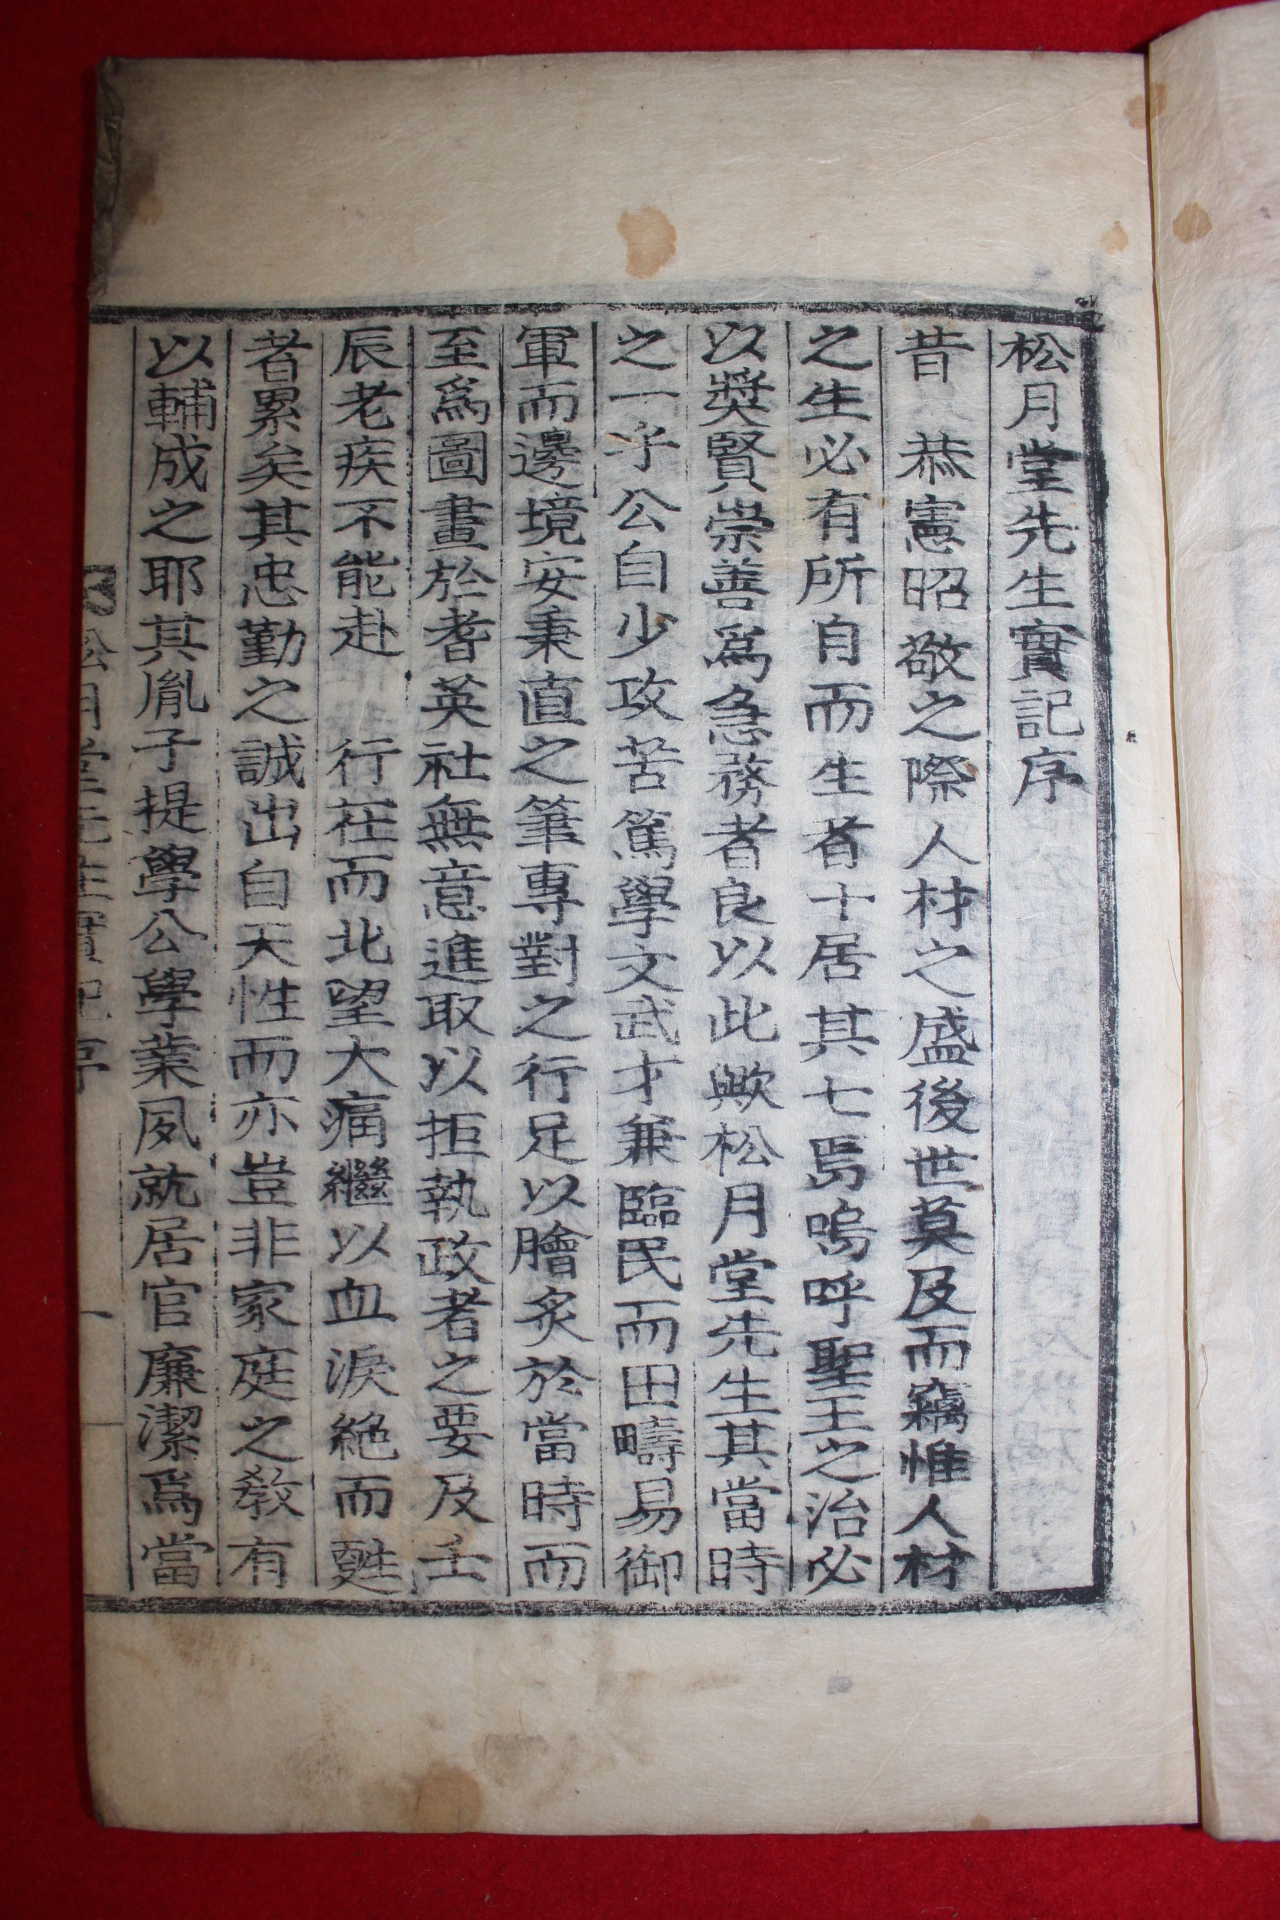 松月堂先生實記序
昔 恭憲昭敬之際人材之盛後世莫及而竊惟人材
之生必有所自而生者十居其七焉嗚呼聖王之治必
以奬賢崇善爲急務者良以此歟松月堂先生其當時
之一乎公自少攻苦篤學文武才兼臨民而田疇易御
軍而邊境安秉直之筆專對之行足以膾炙於當時而
至爲圖畫於耆英社無意進取以拒執政者之要及壬
辰老疾不能赴 行在而北望大痛繼以血淚絶而甦
者累矣其忠勤之誠出自天性而亦豈非家庭之教有
以輔成之耶其胤子提學公學業夙就居官廉潔爲當
松月堂先生實記序 一